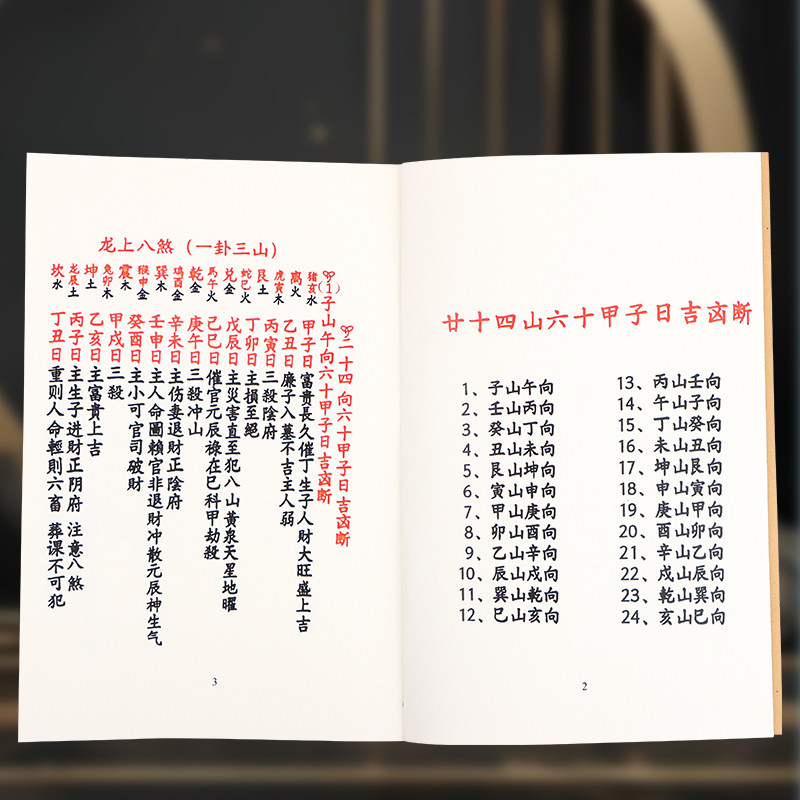 廿十四山六十甲子日吉凶断
1、子山午向
2、壬山丙向
3、癸山丁向
4、丑山未向
5、艮山坤向
6、寅山申向
7、甲山庚向
8、卯山酉向
9、乙山辛向
10、辰山戍向
11、巽山乾向
12、巳山亥向
13、丙山壬向
14、午山子向
15、丁山癸向
16、未山丑向
17、坤山艮向
18、申山寅向
19、庚山甲向
20、酉山卯向
21、辛山乙向
22、戍山辰向
23、乾山巽向
24、亥山巳向
2
龙上八煞（一卦三山）
猪亥水
离火
虎寅木
艮土
蛇巳火
兑金
馬午火
乾金
鷄酉金
巽木
猴申金
震木
兔卯木
坤土
龙辰土
坎水
二十四 向六十甲子日吉凶断
(1)子山午向六十甲子日吉凶断
甲子日富貴長久催丁生子人財大旺盛上吉
乙丑日廉子入墓不吉主人弱
丙寅日三殺陰府
丁卯日主損至絕
戊辰日主災害直至犯八山黃泉天星地曜
己巳日催官元辰祿在巳科甲劫殺
庚午日三殺冲山
辛未日主伤妻退財正陰府
壬申日主人命圖賴官非退財冲散元辰神生气
癸酉日主小可官司破財
甲戍日三殺
乙亥日主富貴上吉
丙子日主生子进財正阴府 注意八煞
丁丑日重則人命輕則六畜 葬课不可犯
3